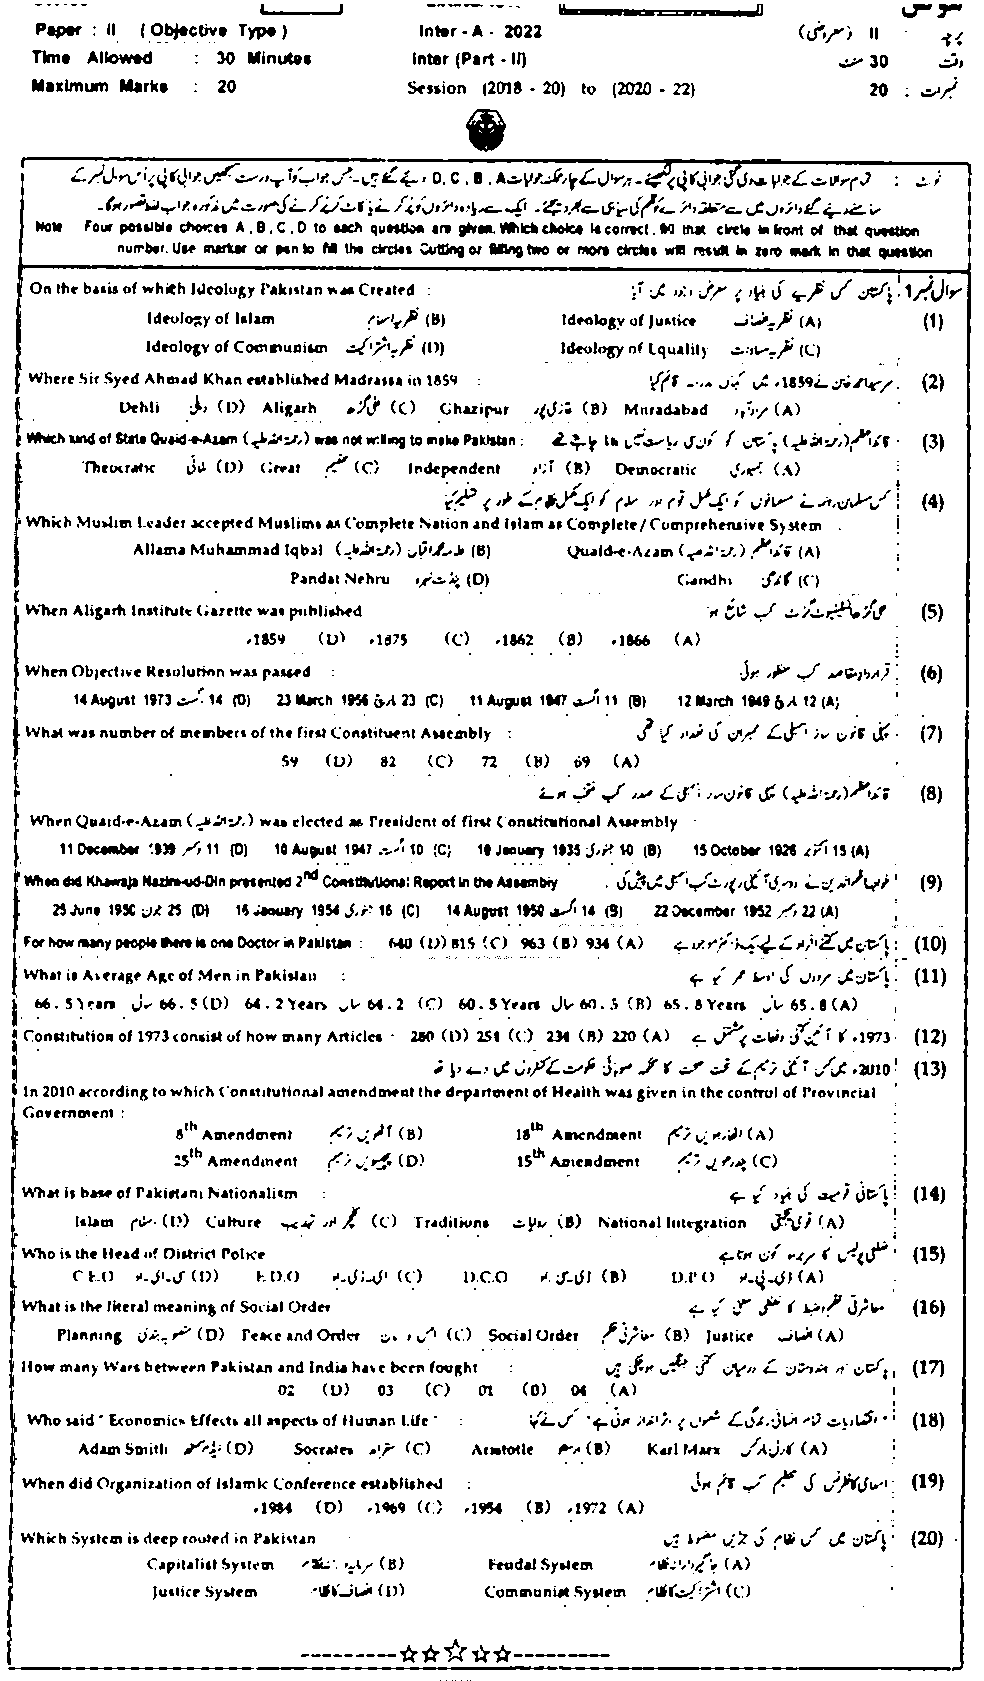 Paper : II ( Objective Type ) Inter - A - 2022 پرچہ : II (معروضی)
Time Allowed : 30 Minutes Inter (Part - II) وقت 30 منٹ
Maximum Marks : 20 Session (2018 - 20) to (2020 - 22) نمبرات : 20
نوٹ : تمام سوالات کے جوابات دی گئی جوابی کاپی پر لکھیئے۔ ہر سوال کے چار ممکنہ جوابات D, C, B, A دیئے گئے ہیں۔ جس جواب کو آپ درست سمجھیں جوابی کاپی پر اُس سوال نمبر کے
سامنے دیئے گئے دائروں میں سے متعلقہ دائرے کو قلم کی سیاہی سے بھر دیجئے۔ ایک سے زیادہ دائروں کو پُر کرنے یا کاٹ کر پُر کرنے کی صورت میں مذکورہ جواب غلط تصور ہوگا۔
Note Four possible choices A, B, C, D to each question are given. Which choice is correct, fill that circle in front of that question
number. Use marker or pen to fill the circles Cutting or filling two or more circles will result in zero mark in that question
On the basis of which Ideology Pakistan was Created : پاکستان کس نظریے کی بنیاد پر معرض وجود میں آیا سوال نمبر 1
Ideology of Islam نظریہ اسلام (B) Ideology of Justice نظریہ انصاف (A) (1)
Ideology of Communism نظریہ اشتراکیت (D) Ideology of Equality نظریہ مساوات (C)
Where Sir Syed Ahmad Khan established Madrassa in 1859 : سرسید احمد خان نے 1859ء میں کہاں مدرسہ قائم کیا (2)
Dehli دہلی (D) Aligarh علی گڑھ (C) Ghazipur غازی پور (B) Muradabad مرادآباد (A)
Which kind of State Quaid-e-Azam (رحمۃ اللہ علیہ) was not willing to make Pakistan : قائداعظم (رحمۃ اللہ علیہ) پاکستان کو کون سی ریاست نہیں بنانا چاہتے تھے (3)
Theocratic ملائی (D) Great عظیم (C) Independent آزاد (B) Democratic جمہوری (A)
کس مسلمان رہنما نے مسلمانوں کو ایک مکمل قوم اور اسلام کو ایک مکمل نظام کے طور پر تسلیم کیا (4)
Which Muslim Leader accepted Muslims as Complete Nation and Islam as Complete / Comprehensive System :
Allama Muhammad Iqbal (رحمۃ اللہ علیہ) علامہ محمد اقبال (B) Quaid-e-Azam (رحمۃ اللہ علیہ) قائداعظم (A)
Pandat Nehru پنڈت نہرو (D) Gandhi گاندھی (C)
When Aligarh Institute Gazette was published علی گڑھ انسٹیٹیوٹ گزٹ کب شائع ہوا (5)
1859ء (D) 1875ء (C) 1862ء (B) 1866ء (A)
When Objective Resolution was passed : قرارداد مقاصد کب منظور ہوئی (6)
14 August 1973 14 اگست (D) 23 March 1956 23 مارچ (C) 11 August 1947 11 اگست (B) 12 March 1949 12 مارچ (A)
What was number of members of the first Constituent Assembly : پہلی قانون ساز اسمبلی کے ممبران کی تعداد کیا تھی (7)
59 (D) 82 (C) 72 (B) 69 (A)
قائداعظم (رحمۃ اللہ علیہ) پہلی قانون ساز اسمبلی کے صدر کب منتخب ہوئے (8)
When Quaid-e-Azam (رحمۃ اللہ علیہ) was elected as President of first Constitutional Assembly :
11 December 1939 11 دسمبر (D) 10 August 1947 10 اگست (C) 10 January 1935 10 جنوری (B) 15 October 1926 15 اکتوبر (A)
When did Khawaja Nazim-ud-Din presented 2nd Constitutional Report in the Assembly : خواجہ ناظم الدین نے دوسری آئینی رپورٹ کب اسمبلی میں پیش کی (9)
25 June 1950 25 جون (D) 16 January 1954 16 جنوری (C) 14 August 1950 14 اگست (B) 22 December 1952 22 دسمبر (A)
For how many people there is one Doctor in Pakistan : 640 (D) 815 (C) 963 (B) 934 (A) پاکستان میں کتنے افراد کے لیے ایک ڈاکٹر موجود ہے (10)
What is Average Age of Men in Pakistan : پاکستان میں مردوں کی اوسط عمر کیا ہے (11)
66.5 Years سال 66.5 (D) 64.2 Years سال 64.2 (C) 60.5 Years سال 60.5 (B) 65.8 Years سال 65.8 (A)
Constitution of 1973 consist of how many Articles : 280 (D) 254 (C) 234 (B) 220 (A) 1973ء کا آئین کتنی دفعات پر مشتمل ہے (12)
2010ء میں کس آئینی ترمیم کے تحت صحت کا محکمہ صوبائی حکومت کے کنٹرول میں دے دیا تھا (13)
In 2010 according to which Constitutional amendment the department of Health was given in the control of Provincial
Government :
8th Amendment آٹھویں ترمیم (B) 18th Amendment اٹھارہویں ترمیم (A)
25th Amendment پچیسویں ترمیم (D) 15th Amendment پندرھویں ترمیم (C)
What is base of Pakistani Nationalism : پاکستانی قومیت کی بنیاد کیا ہے (14)
Islam اسلام (D) Culture کلچر اور تہذیب (C) Traditions روایات (B) National Integration قومی یکجہتی (A)
Who is the Head of District Police ضلعی پولیس کا سربراہ کون ہوتا ہے (15)
C.E.O سی۔ای۔او (D) E.D.O ای۔ڈی۔او (C) D.C.O ڈی۔سی۔او (B) D.P.O ڈی۔پی۔او (A)
What is the literal meaning of Social Order معاشرتی نظم و ضبط کا لفظی معنی کیا ہے (16)
Planning منصوبہ بندی (D) Peace and Order امن و امان (C) Social Order معاشرتی نظم (B) Justice انصاف (A)
How many Wars between Pakistan and India have been fought : پاکستان اور ہندوستان کے درمیان کتنی جنگیں ہو چکی ہیں (17)
02 (D) 03 (C) 01 (B) 04 (A)
Who said " Economics Effects all aspects of Human Life " : "اقتصادیات تمام انسانی زندگی کے شعبوں پر اثرانداز ہوتی ہے" کس نے کہا (18)
Adam Smith ایڈم سمتھ (D) Socrates سقراط (C) Aristotle ارسطو (B) Karl Marx کارل مارکس (A)
When did Organization of Islamic Conference established : اسلامی کانفرنس کی تنظیم کب قائم ہوئی (19)
1984ء (D) 1969ء (C) 1954ء (B) 1972ء (A)
Which System is deep routed in Pakistan : پاکستان میں کس نظام کی جڑیں مضبوط ہیں (20)
Capitalist System سرمایہ دارانہ نظام (B) Feudal System جاگیردارانہ نظام (A)
Justice System انصاف کا نظام (D) Communist System اشتراکیت کا نظام (C)